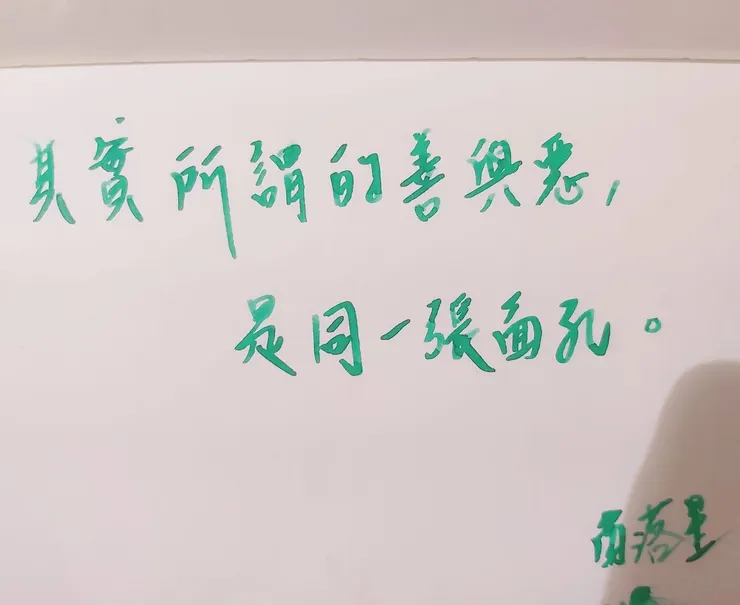 其實所謂的善與惡,
是同一張面孔。
落星